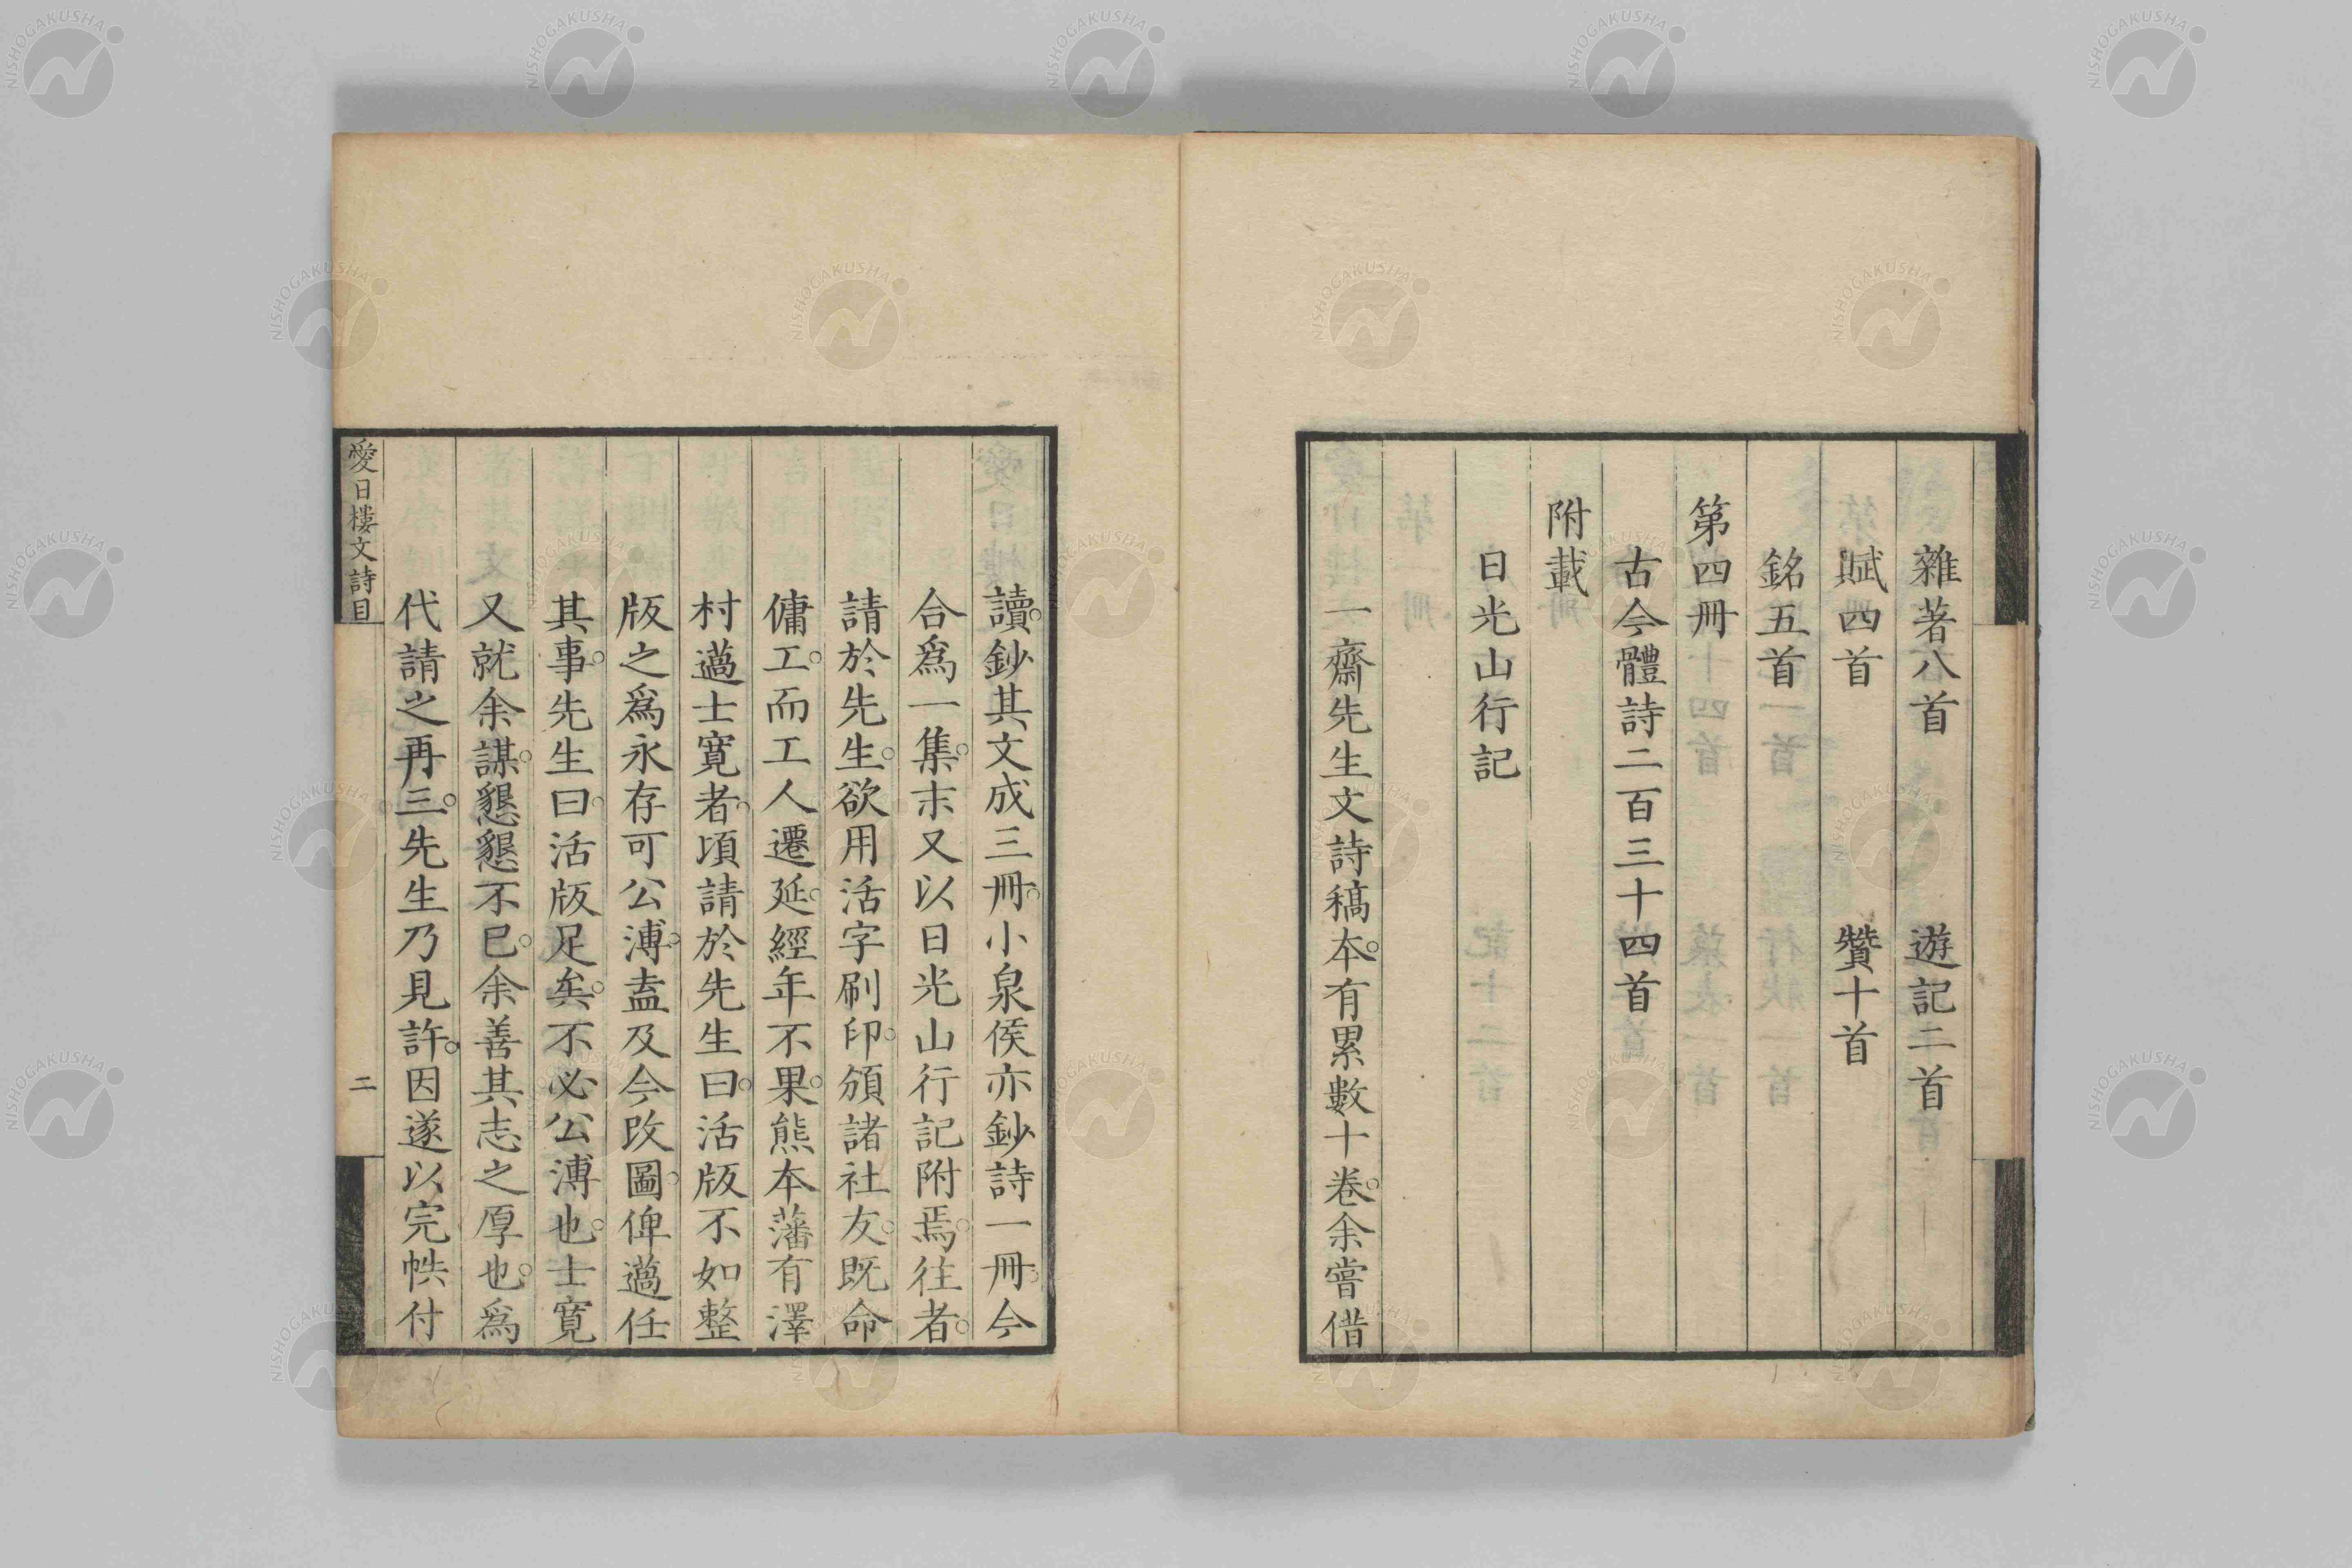 雜著八首　遊記二首
賦四首　贊十首
銘五首
第四冊
古今體詩二百三十四首
附載
日光山行記
一齋先生文詩稿本。有累數十卷。余嘗借
讀。鈔其文成三冊。小泉侯亦鈔詩一冊。今
合爲一集。末又以日光山行記附焉。往者。
請於先生。欲用活字刷印。頒諸社友。既命
傭工。而工人遷延。經年不果。熊本藩有澤
村邁士寬者。頃請於先生曰。活版不如整
版之爲永存可公溥。盍及今改圖。俾邁任
其事。先生曰。活版足矣。不必公溥也。士寬
又就余謀。懇懇不已。余善其志之厚也。爲
代請之再三。先生乃見許。因遂以完帙付
愛日樓文詩目
二
NISHOGAKUSHA